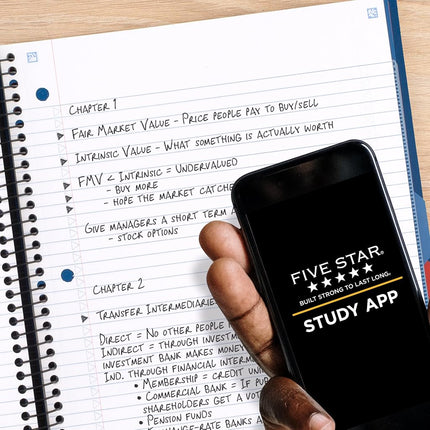 CHAPTER 1
FAIR MARKET VALUE - PRICE PEOPLE PAY TO BUY/SELL
INTRINSIC VALUE - WHAT SOMETHING IS ACTUALLY WORTH
FMV < INTRINSIC = UNDERVALUED
- BUY MORE
- HOPE THE MARKET CATCHE
GIVE MANAGERS A SHORT TERM
- STOCK OPTIONS
CHAPTER 2
TRANSFER INTERMEDIARIE
DIRECT = NO OTHER PEOPLE
INDIRECT = THROUGH INVEST
INVESTMENT BANK MAKES MONEY
IND. THROUGH FINANCIAL INTERM
• MEMBERSHIP = CREDIT UNI
• COMMERCIAL BANK = IF PUB
SHAREHOLDERS GET A VOT
• PENSION FUNDS
-RATE BANKS
FIVE STAR®
★★★★★
BUILT STRONG TO LAST LONG™
STUDY APP